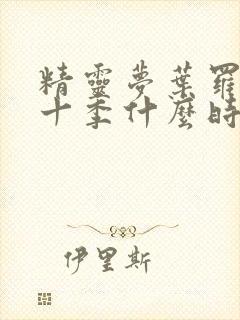 精靈夢葉羅
十季什麼時
伊里斯